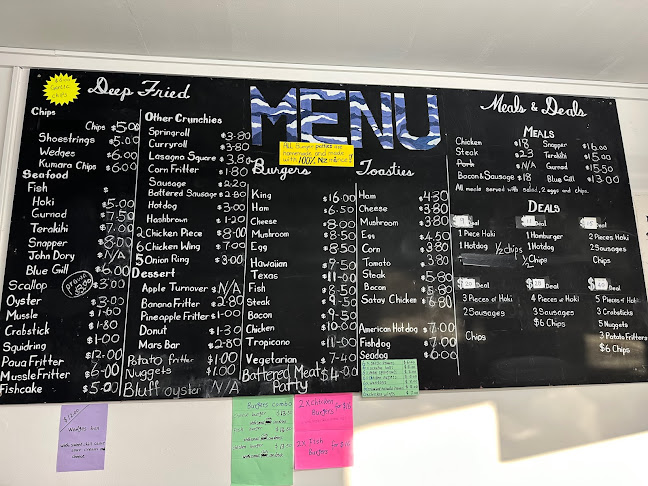 Garlic
Chips
Deep Fried
MENU
Meals & Deals
All Burger patties are
homemade and made
with 100% NZ mince
Chips
Chips $5.00
Shoestrings $5.00
Wedges $6.00
Kumara Chips $6.00
Seafood
Fish $
Hoki $5.00
Gurnad $7.50
Terakihi $7.00
Snapper $8.00
John Dory N/A
Blue Gill $6.00
Scallop $3.00
Oyster $3.00
Mussle $1.60
Crabstick $1.80
Squidring $1.00
Paua Fritter $12.00
Mussle Fritter $6.00
Fishcake $5.00
Other Crunchies
Springroll $3.80
Curryroll $3.80
Lasagna Square $3.80
Corn Fritter $1.80
Sausage $2.20
Battered Sausage $2.80
Hotdog $3.00
Hashbrown $1.20
2 Chicken Piece $8.00
6 Chicken Wing $7.00
5 Onion Ring $3.00
Dessert
Apple Turnover N/A
Banana Fritter $2.80
Pineapple Fritter $1.00
Donut $1.30
Mars Bar $2.80
Potato fritter $1.00
Nuggets $1.00
Bluff oyster N/A
Burgers
King $16.00
Ham $6.50
Cheese $8.00
Mushroom $8.50
Egg $8.50
Hawaiian $9.50
Texas $11.00
Fish $8.50
Steak $9.50
Bacon $9.50
Chicken $10.00
Tropicano $11.00
Vegetarian $7.40
Battered Meat $4.00
Party
Toasties
Ham $4.30
Cheese $3.80
Mushroom $3.80
Egg $4.50
Corn $3.80
Tomato $3.80
Steak $5.80
Bacon $5.80
Satay Chicken $6.80
American Hotdog $7.00
Fishdog $7.00
Seadog $6.00
Meals
Chicken $18
Steak $23
Pork N/A
Bacon & Sausage $18
Snapper $16.00
Terakihi $15.00
Gurnad $15.50
Blue Gill $13.00
All meals served with salad, 2 eggs and chips.
Deals
Deal
1 Piece Hoki
1 Hotdog
1/2 Chips
Deal
1 Hamburger
1 Hotdog
1/2 Chips
Deal
2 Pieces Hoki
2 Sausages
Chips
$20 Deal
3 Pieces of Hoki
2 Sausages
Chips
Deal
4 Pieces of Hoki
3 Sausages
$6 Chips
Deal
5 Pieces of Hoki
3 Crabsticks
5 Nuggets
3 Potato Fritters
$6 Chips
Wedges box
Burgers combo
2x Chicken
Burgers
2x Fish
Burgers